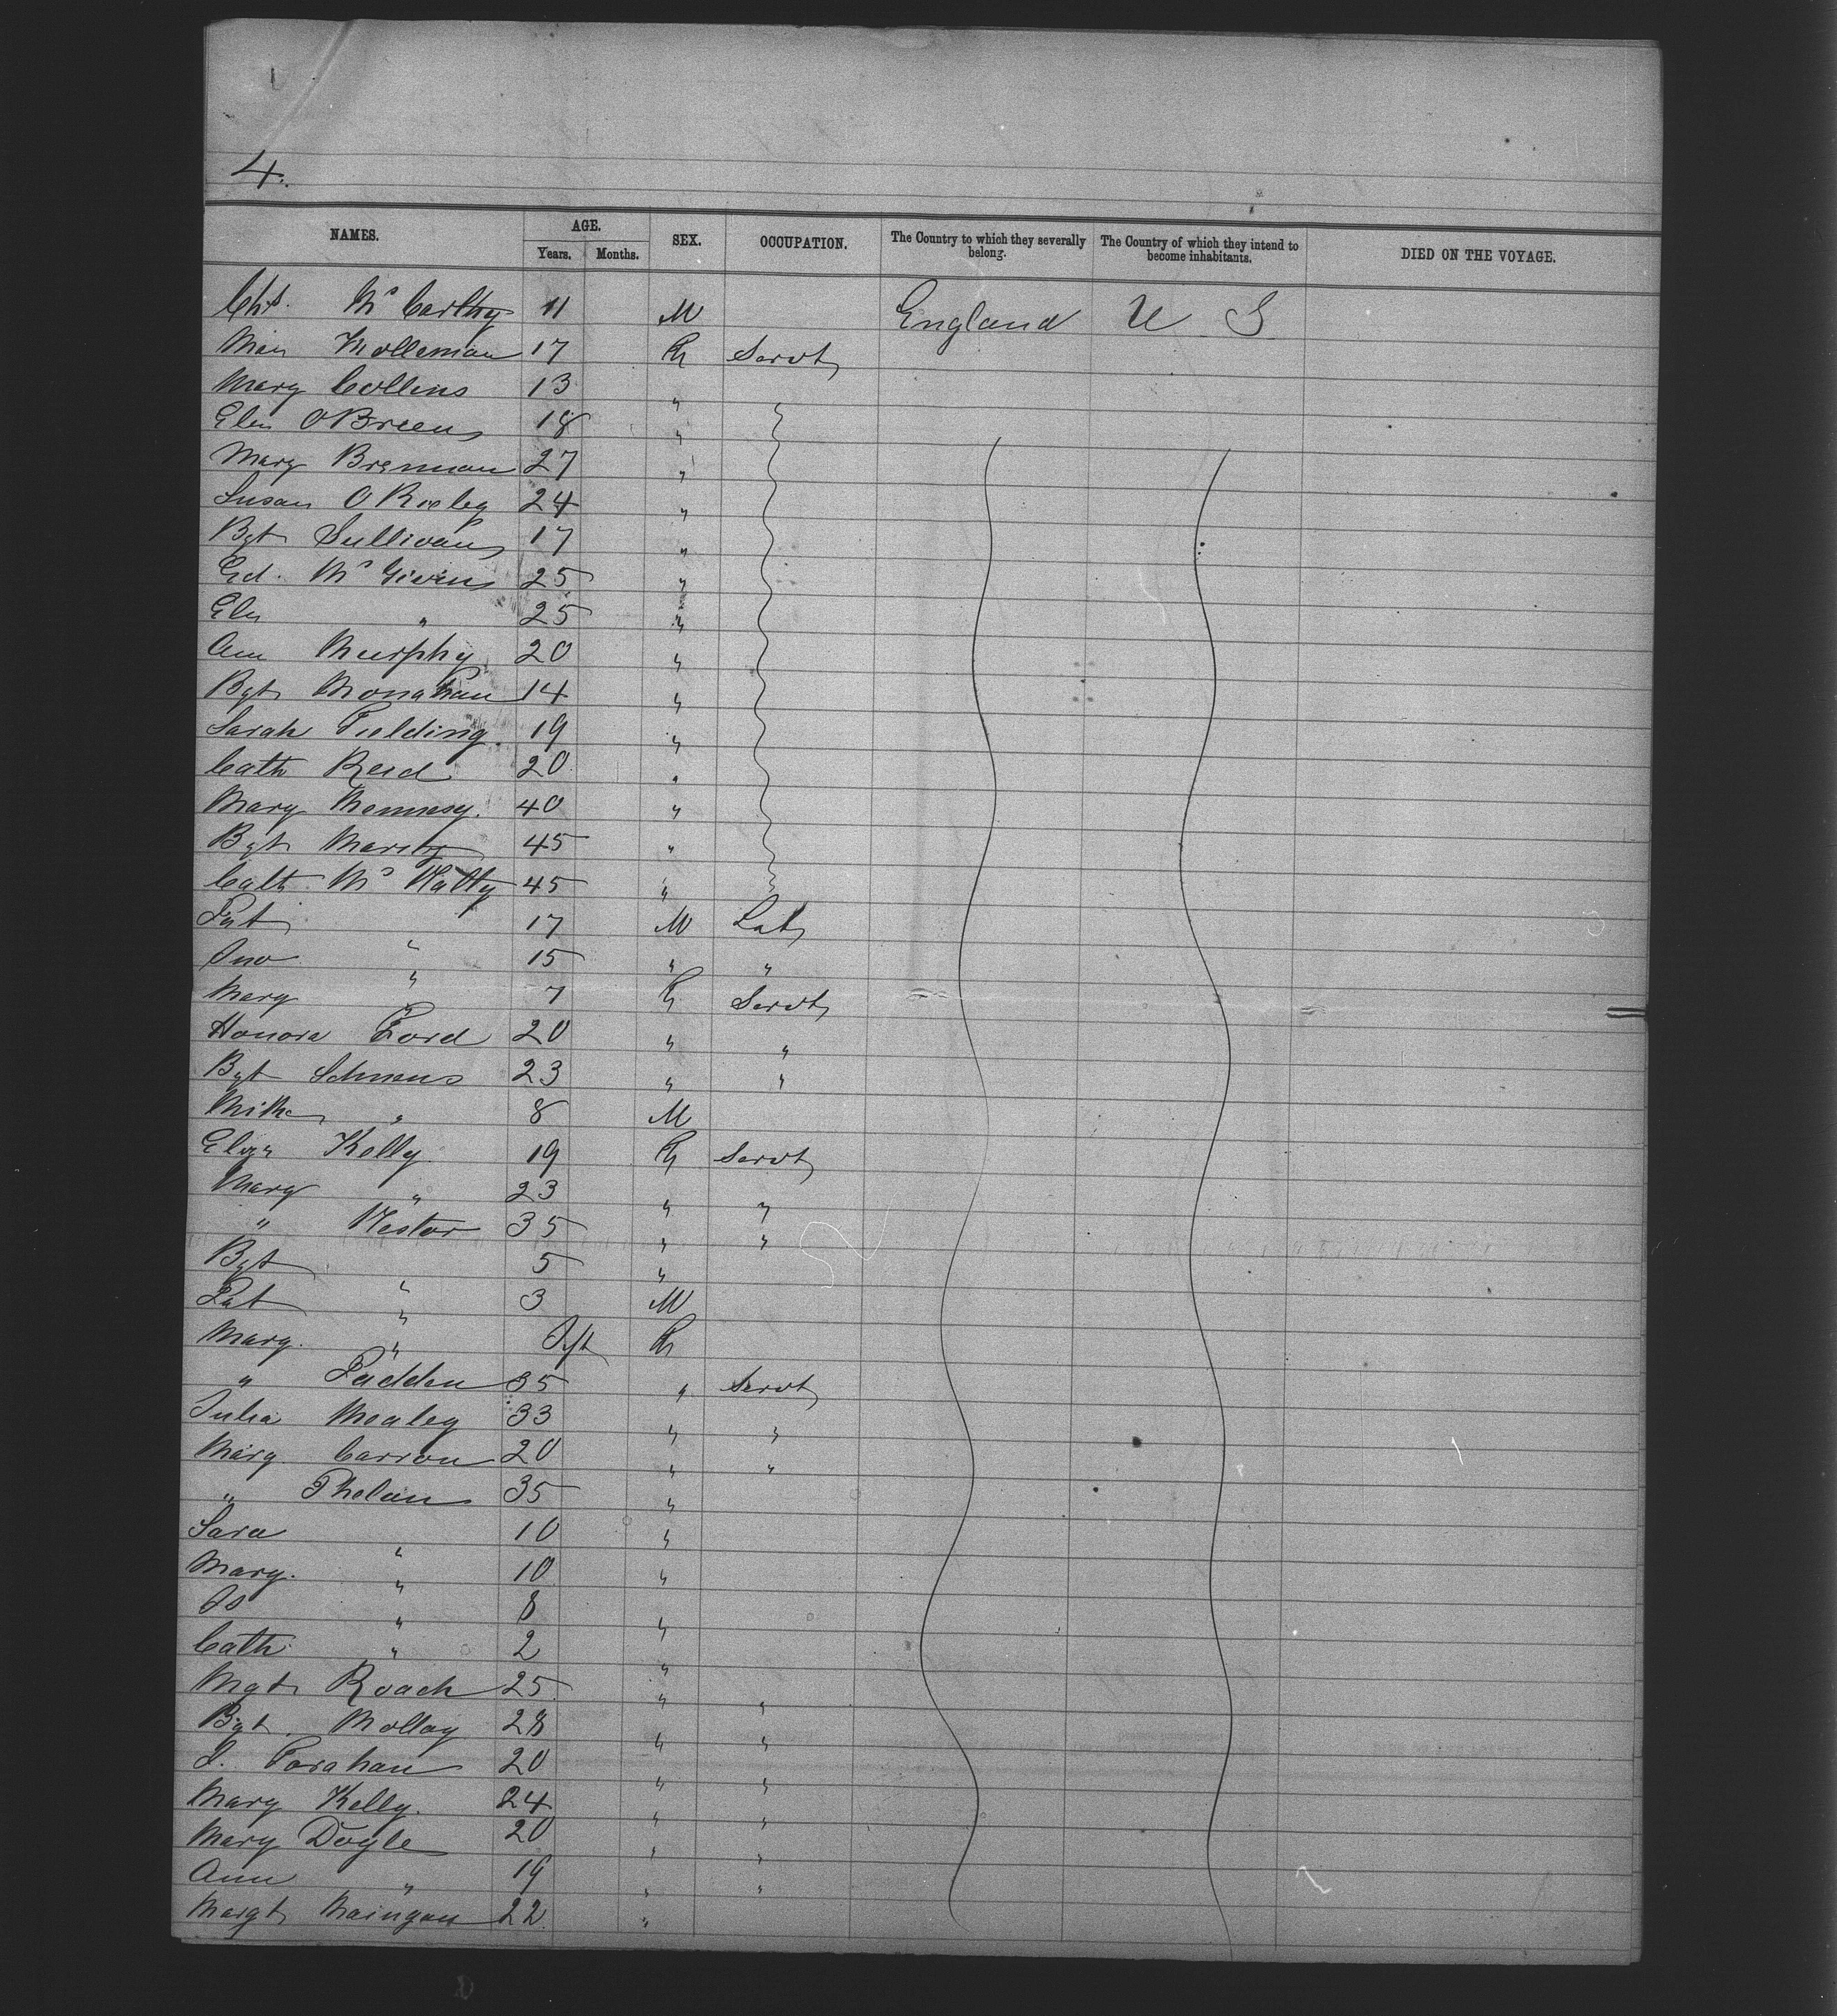 4.
NAMES. AGE. SEX. OCCUPATION. The Country to which they severally belong. The Country of which they intend to become inhabitants. DIED ON THE VOYAGE.
Years. Months.
Chs. Mc Carthy 11 M England U S
17 Servt
Mary Collins 13 "
Elen O Breen 18 "
Mary Brennan 27 "
Susan O 24 "
Bgt Sullivan 17 "
Ed. Mc Givins 25 "
Elen " 25 "
Ann Murphy 20 "
Bgt Monahan 14 "
Sarah Fielding 19 "
Cath Reid 20 "
Mary 40 "
Bgt 45 "
Cath Mc 45 "
Pat " 17 M Lab
Jno " 15 " "
Mary " 7 Servt
Honora Ford 20 " "
Bgt 23 " "
" 8 M
Eliza Kelly 19 Servt
Mary " 23 " "
" Nestor 35 " "
Bgt " 5 "
Pat " 3 M
Marg. " Inft
" Padden 35 " Servt
Julia Mealey 33 " "
Marg. Carron 20 " "
" Phelan 35 "
Sara " 10 "
Marg. " 10 "
Js " 8 "
Cath " 2 "
Mgt Roach 25 " "
Bgt Molloy 28 " "
20 " "
Mary Kelly. 24 " "
Mary Doyle 20 " "
Ann " 19 " "
Margt 22 "